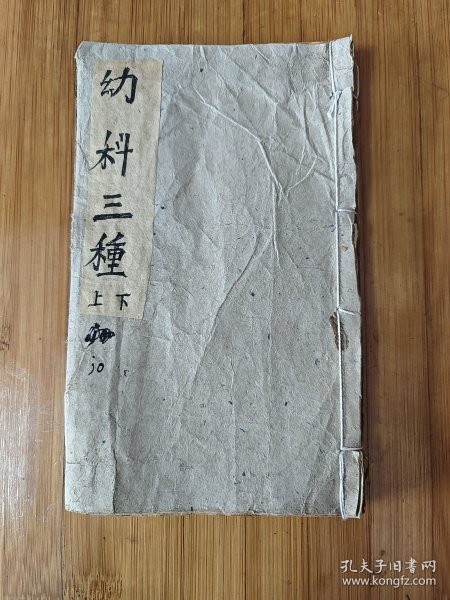 幼科三種
上下
30
孔夫子旧书网
www.kongfz.com